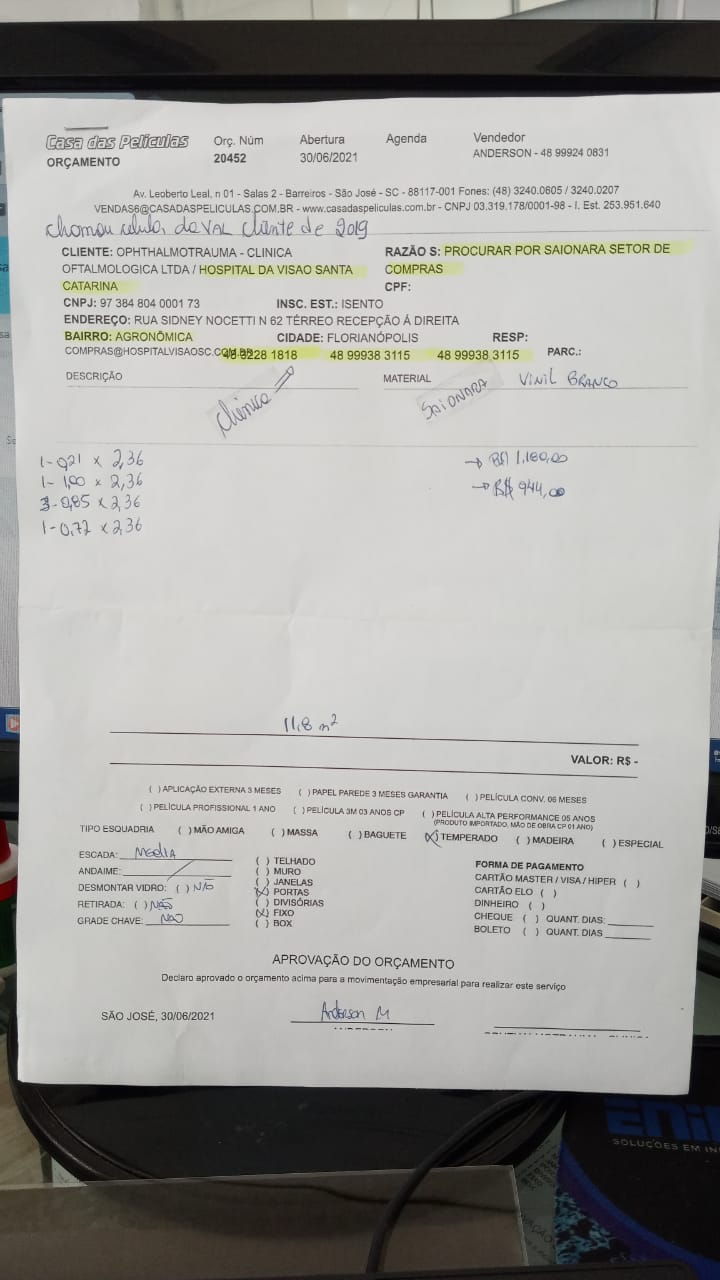 Casa das Películas
ORÇAMENTO
Orç. Núm
20452
Abertura
30/06/2021
Agenda
Vendedor
ANDERSON - 48 99924 0831
Av. Leoberto Leal, n 01 - Salas 2 - Barreiros - São José - SC - 88117-001 Fones: (48) 3240.0605 / 3240.0207
VENDAS6@CASADASPELICULAS.COM.BR - www.casadaspeliculas.com.br - CNPJ 03.319.178/0001-98 - I. Est. 253.951.640
chamou celular da VAL cliente de 2019
CLIENTE: OPHTHALMOTRAUMA - CLINICA
OFTALMOLOGICA LTDA / HOSPITAL DA VISAO SANTA
CATARINA
RAZÃO S: PROCURAR POR SAIONARA SETOR DE
COMPRAS
CPF:
CNPJ: 97 384 804 0001 73 INSC. EST.: ISENTO
ENDEREÇO: RUA SIDNEY NOCETTI N 62 TÉRREO RECEPÇÃO Á DIREITA
BAIRRO: AGRONÔMICA CIDADE: FLORIANÓPOLIS RESP:
COMPRAS@HOSPITALVISAOSC.COM.BR 48 3228 1818 48 99938 3115 48 99938 3115 PARC.:
DESCRIÇÃO MATERIAL VINIL BRANCO
Clinica SAIONARA
1- 0,21 x 2,36 → R$ 1.180,00
1- 1,00 x 2,36 → R$ 944,00
3- 0,85 x 2,36
1- 0,72 x 2,36
11,8 m²
VALOR: R$ -
( ) APLICAÇÃO EXTERNA 3 MESES ( ) PAPEL PAREDE 3 MESES GARANTIA ( ) PELÍCULA CONV. 06 MESES
( ) PELÍCULA PROFISSIONAL 1 ANO ( ) PELÍCULA 3M 03 ANOS CP ( ) PELÍCULA ALTA PERFORMANCE 05 ANOS
(PRODUTO IMPORTADO, MÃO DE OBRA CP 01 ANO)
TIPO ESQUADRIA ( ) MÃO AMIGA ( ) MASSA ( ) BAGUETE (X) TEMPERADO ( ) MADEIRA ( ) ESPECIAL
ESCADA: MEDIA
ANDAIME:
DESMONTAR VIDRO: ( ) NÃO
RETIRADA: ( ) NÃO
GRADE CHAVE: NÃO
( ) TELHADO
( ) MURO
( ) JANELAS
(X) PORTAS
( ) DIVISÓRIAS
(X) FIXO
( ) BOX
FORMA DE PAGAMENTO
CARTÃO MASTER / VISA / HIPER ( )
CARTÃO ELO ( )
DINHEIRO ( )
CHEQUE ( ) QUANT. DIAS:
BOLETO ( ) QUANT. DIAS
APROVAÇÃO DO ORÇAMENTO
Declaro aprovado o orçamento acima para a movimentação empresarial para realizar este serviço
SÃO JOSÉ, 30/06/2021 Anderson M
SOLUÇÕES EM